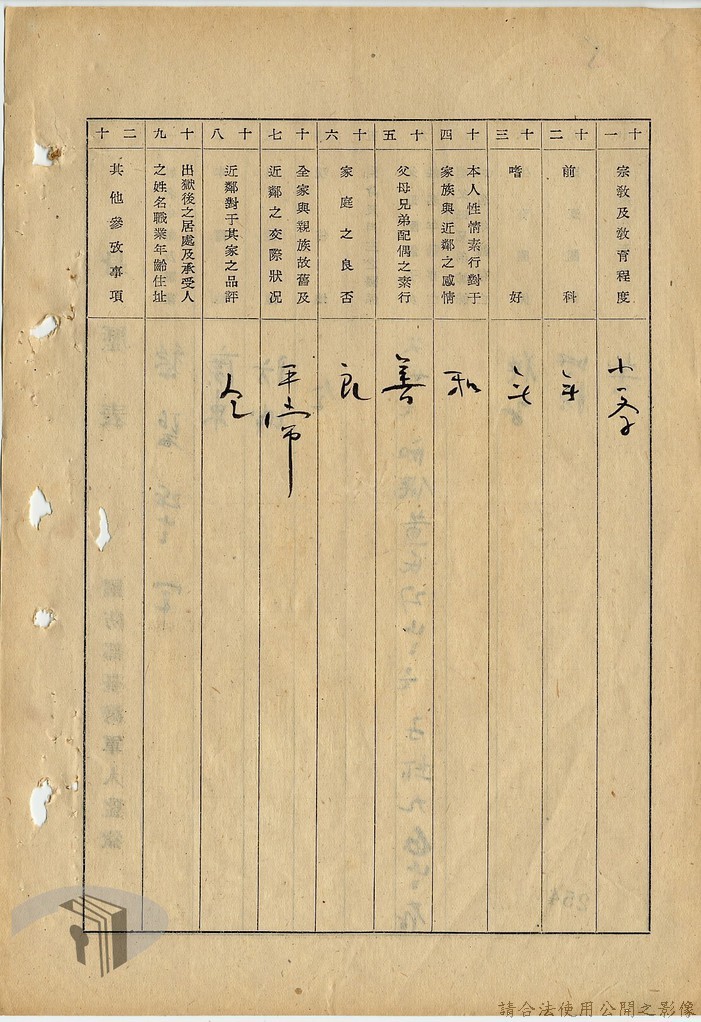 十一
宗教及教育程度
小学
十二
前科
無
十三
嗜好
無
十四
本人性情素行對于
家族與近鄰之感情
和
十五
父母兄弟配偶之素行
善
十六
家庭之良否
良
十七
全家與親族故舊及
近鄰之交際狀况
平常
十八
近鄰對于其家之品評
仝
十九
出獄後之居處及承受人
之姓名職業年齡住址
二十
其他參攷事項
254
請合法使用公開之影像